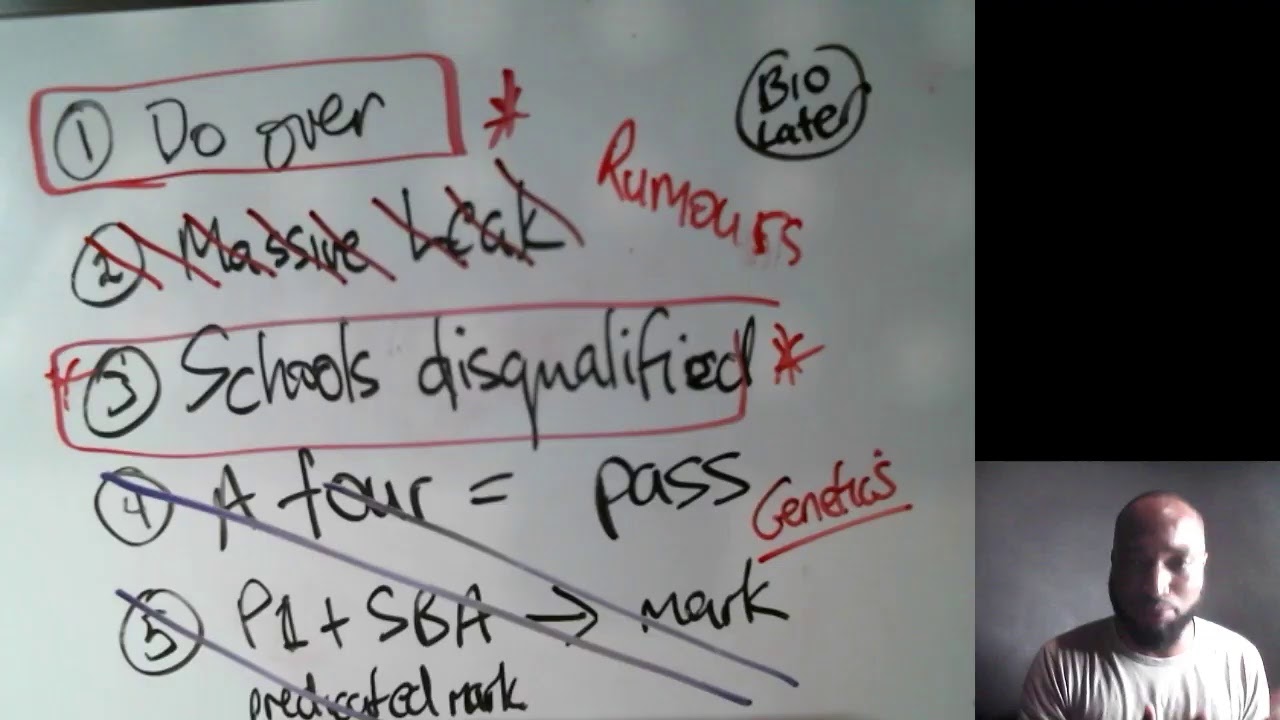 1 Do over *
Bio
Later
Rumours
2 Massive Leak
3 Schools disqualified *
4 A four = pass
Genetics
5 P1 + SBA → mark
predicated mark